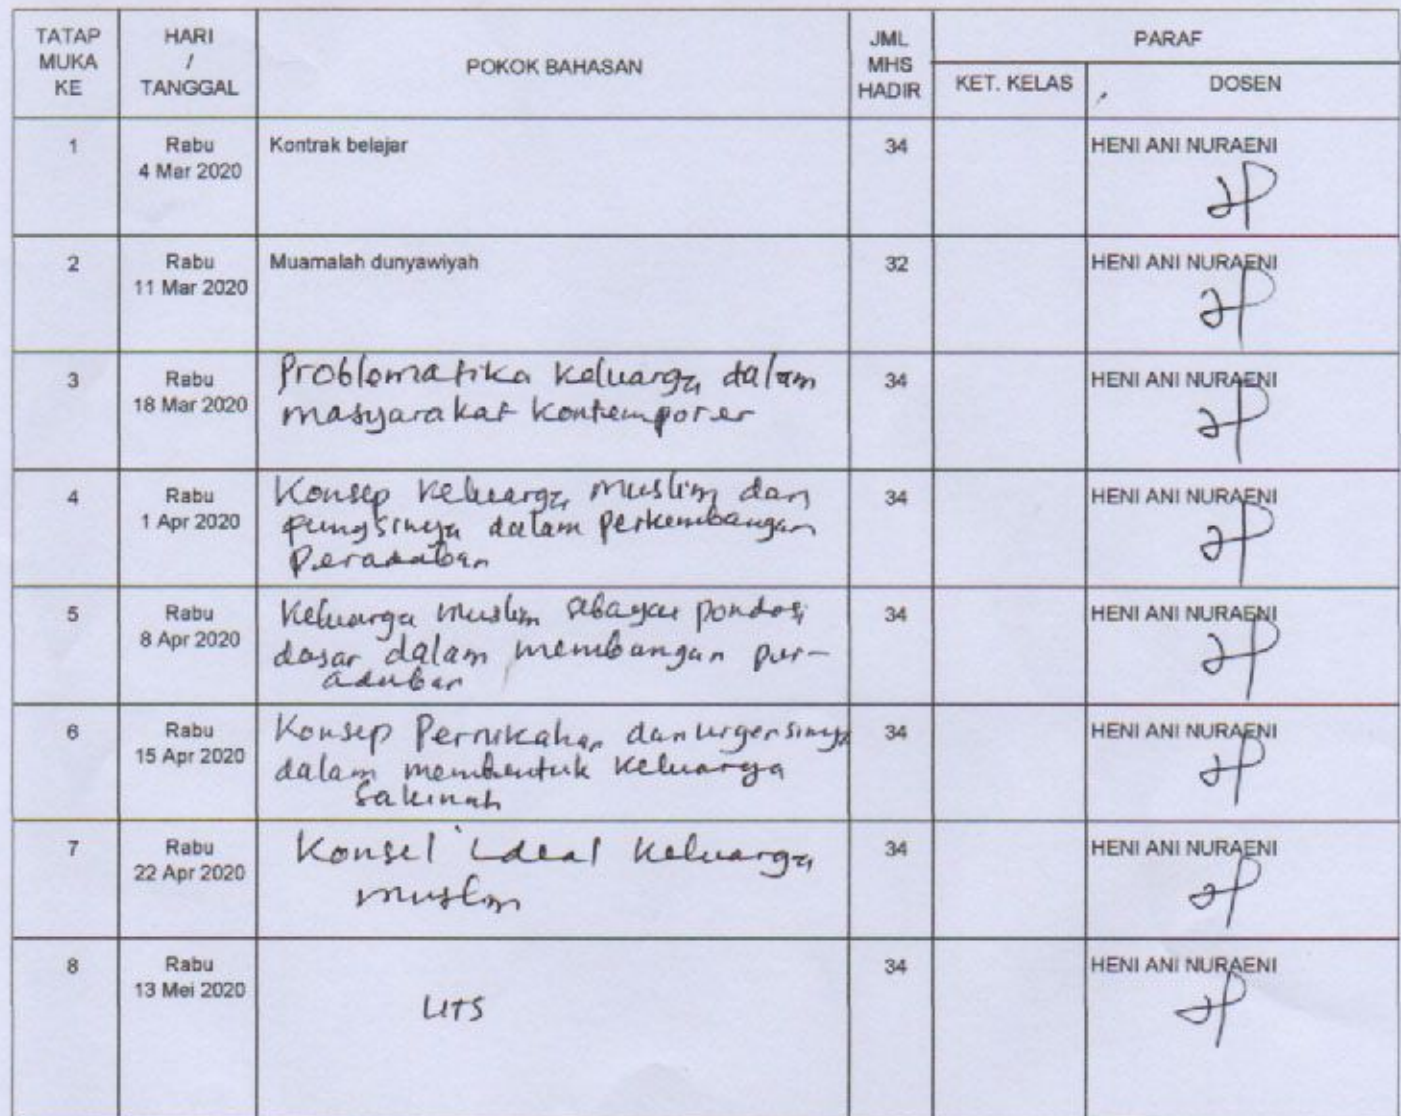 TATAP MUKA KE
HARI / TANGGAL
POKOK BAHASAN
JML MHS HADIR
PARAF
KET. KELAS
DOSEN
1
Rabu
4 Mar 2020
Kontrak belajar
34
HENI ANI NURAENI
2
Rabu
11 Mar 2020
Muamalah dunyawiyah
32
HENI ANI NURAENI
3
Rabu
18 Mar 2020
Problematika keluarga dalam
masyarakat kontemporer
34
HENI ANI NURAENI
4
Rabu
1 Apr 2020
Konsep keluarga muslim dan
fungsinya dalam perkembangan
Peradaban
34
HENI ANI NURAENI
5
Rabu
8 Apr 2020
Keluarga muslim sebagai pondasi
dasar dalam membangun per-
adaban
34
HENI ANI NURAENI
6
Rabu
15 Apr 2020
Konsep Pernikahan dan urgensinya
dalam membentuk keluarga
Sakinah
34
HENI ANI NURAENI
7
Rabu
22 Apr 2020
Konsel ideal keluarga
muslim
34
HENI ANI NURAENI
8
Rabu
13 Mei 2020
UTS
34
HENI ANI NURAENI